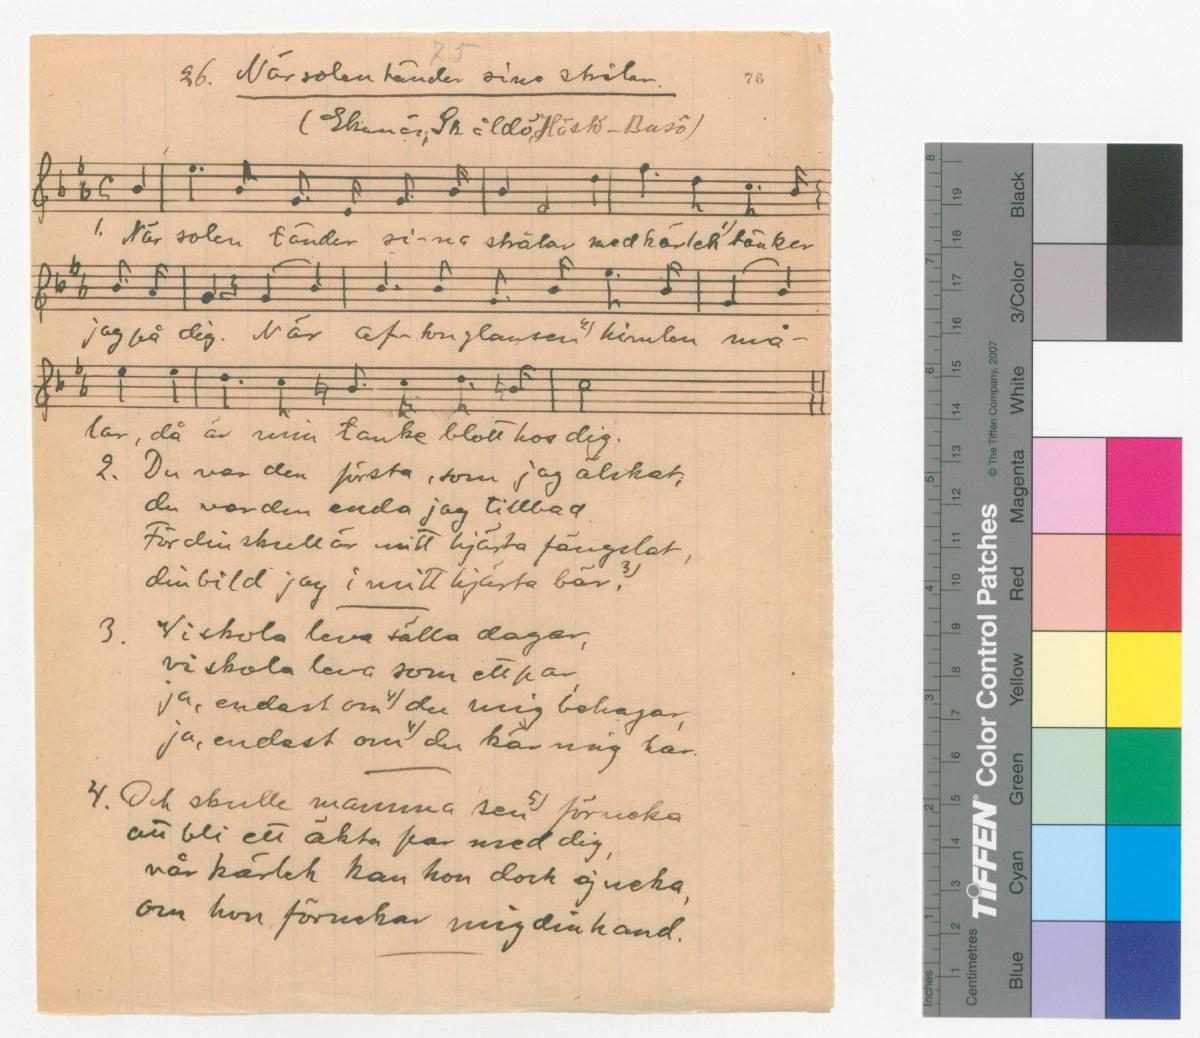 75
26. När solen tänder sina strålar. 76
(Ekenäs, Skåldö, Hästö-Busö)
1. När solen tänder si-na strålar med kärlek 1) tänker
jag på dig. När af-tonglansen 2) himlen må-
lar, då är min tanke blott hos dig.
2. Du var den första, som jag älskat,
du var den enda jag tillbad
För din skull är mitt hjärta fängslat,
din bild jag i mitt hjärta bär. 3)
3. Vi skola leva sälla dagar,
vi skola leva som ett par,
ja, endast om 4) du mig behagar,
ja, endast om 4) du kär mig har.
4. Och skulle mamma sen 5) förneka
att bli ett äkta par med dig,
vår kärlek kan hon dock ej neka,
om hon förnekar mig din hand.
Inches
Centimetres
TIFFEN® Color Control Patches
© The Tiffen Company, 2007
Blue
Cyan
Green
Yellow
Red
Magenta
White
3/Color
Black
1 2 3 4 5 6 7 8
1 2 3 4 5 6 7 8 9 10 11 12 13 14 15 16 17 18 19